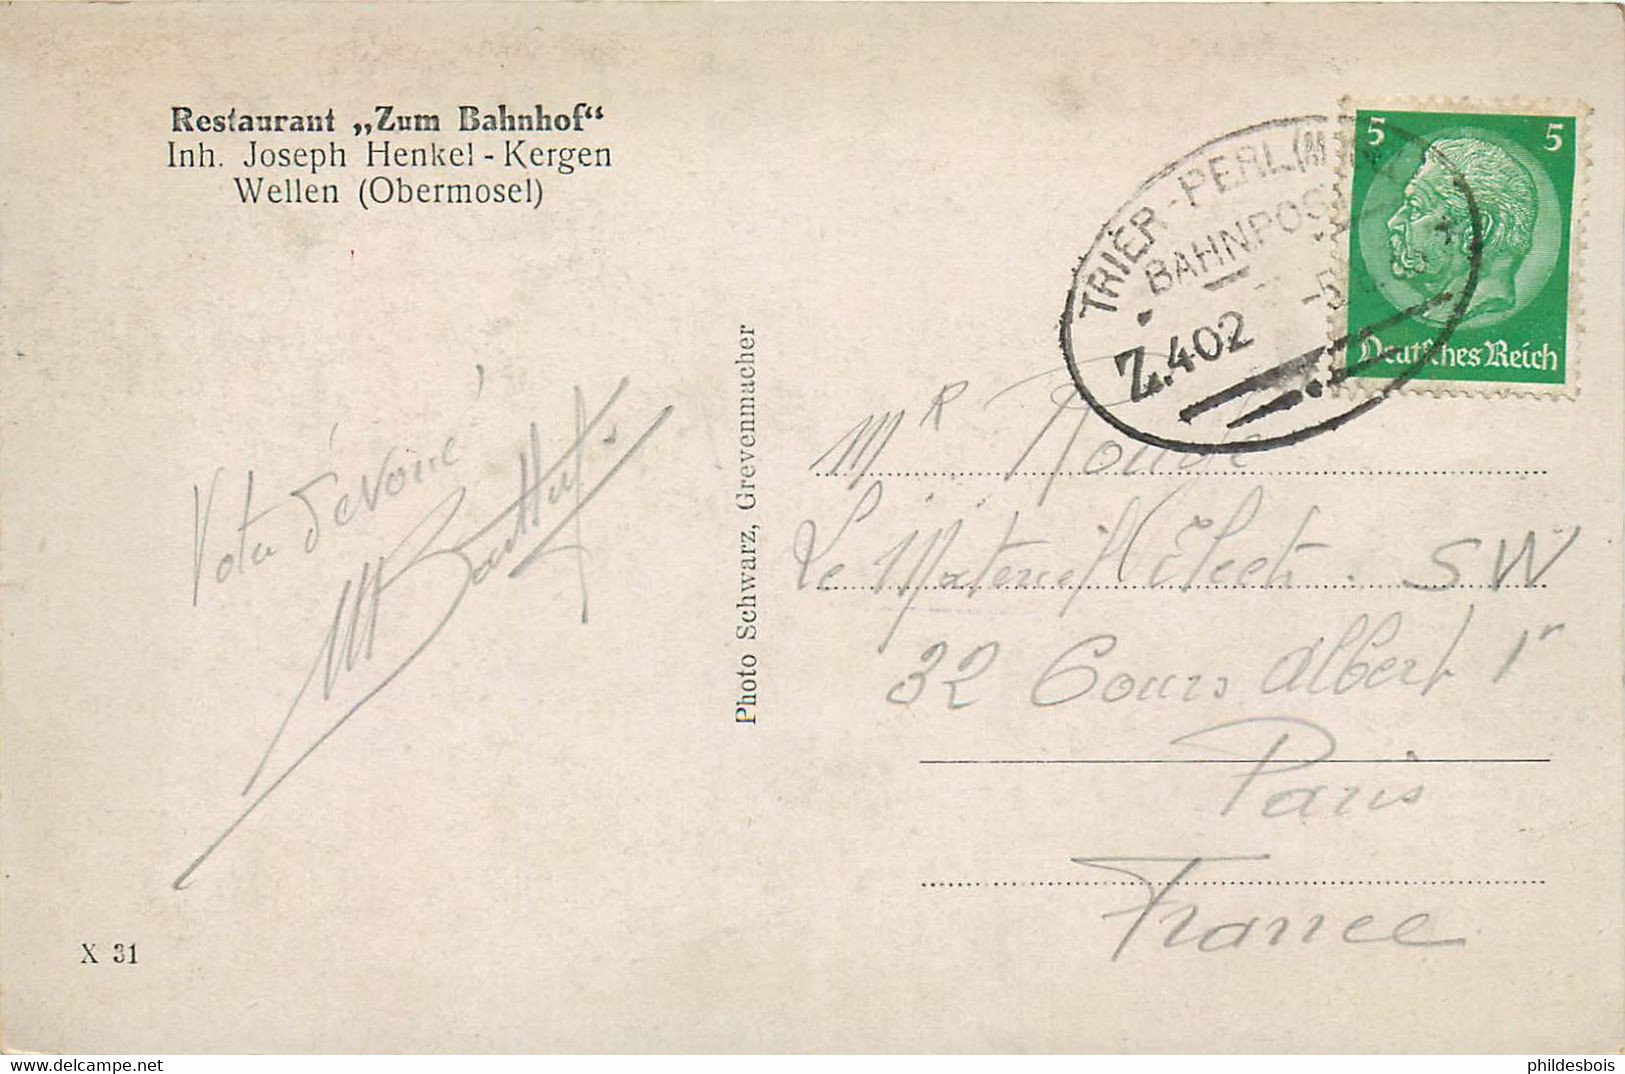 Restaurant „Zum Bahnhof“
Inh. Joseph Henkel - Kergen
Wellen (Obermosel)
Votre dévoué
X 31
Photo Schwarz, Grevenmacher
TRIER - PERL (MOSEL)
BAHNPOST
Z.402
5 5
Deutsches Reich
Mr
Le Materiel Electr. SW
32 Cours Albert 1r
Paris
France
www.delcampe.net
phildesbois